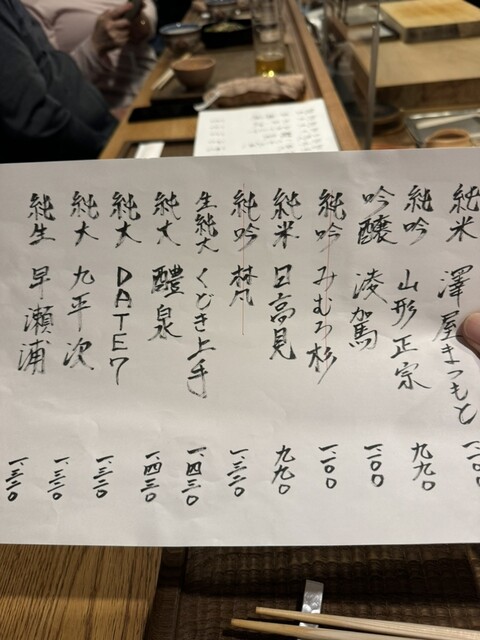 純米 澤屋まつもと
純吟 山形正宗 九九〇
吟醸 凌駕 一、一〇〇
純吟 みむろ杉 一、一〇〇
純米 日高見 九九〇
純吟 梵 一、三二〇
生純大 くどき上手 一、四三〇
純大 醴泉 一、四三〇
純大 DATE7 一、三二〇
純大 九平次 一、三二〇
純生 早瀬浦 一、三二〇